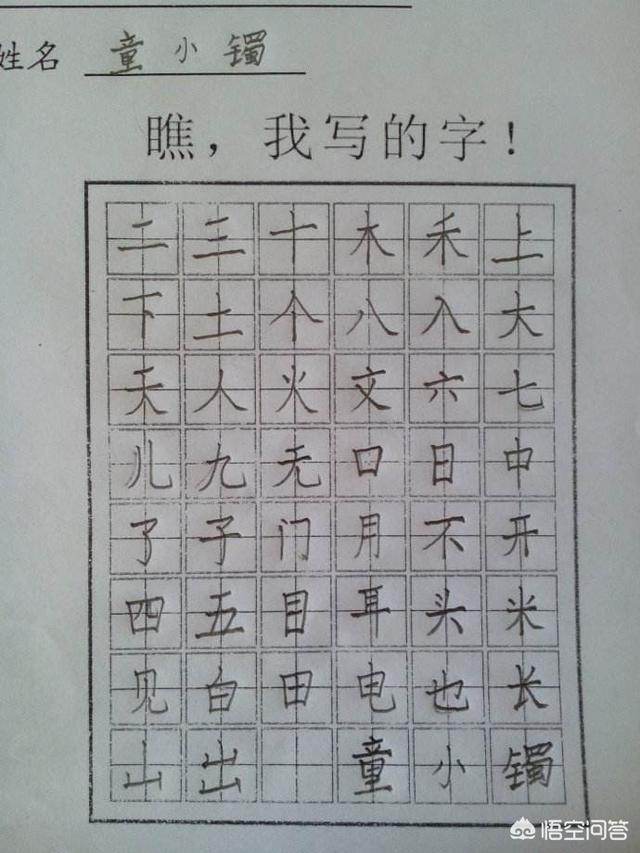 姓名 童小镯
瞧，我写的字！
二三十木禾上
下土个八入大
天人火文六七
儿九无口日中
了子门月不开
四五目耳头米
见白田电也长
山出 童小镯
悟空问答